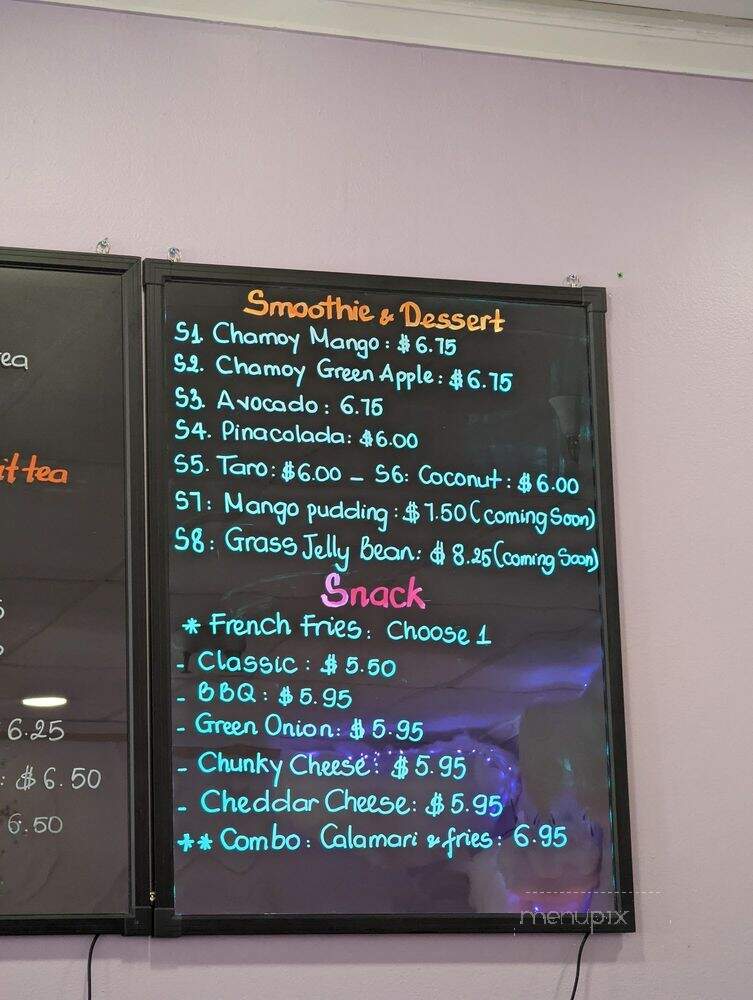 ea
it tea
6.25
: $6.50
6.50
Smoothie & Dessert
S1. Chamoy Mango: $6.75
S2. Chamoy Green Apple: $6.75
S3. Avocado: 6.75
S4. Pinacolada: $6.00
S5. Taro: $6.00 - S6: Coconut: $6.00
S7: Mango pudding: $7.50 (coming Soon)
S8: Grass Jelly Bean: $8.25 (coming Soon)
Snack
* French Fries: Choose 1
- Classic: $5.50
- BBQ: $5.95
- Green Onion: $5.95
- Chunky Cheese: $5.95
- Cheddar Cheese: $5.95
** Combo: Calamari & fries: 6.95
menupix